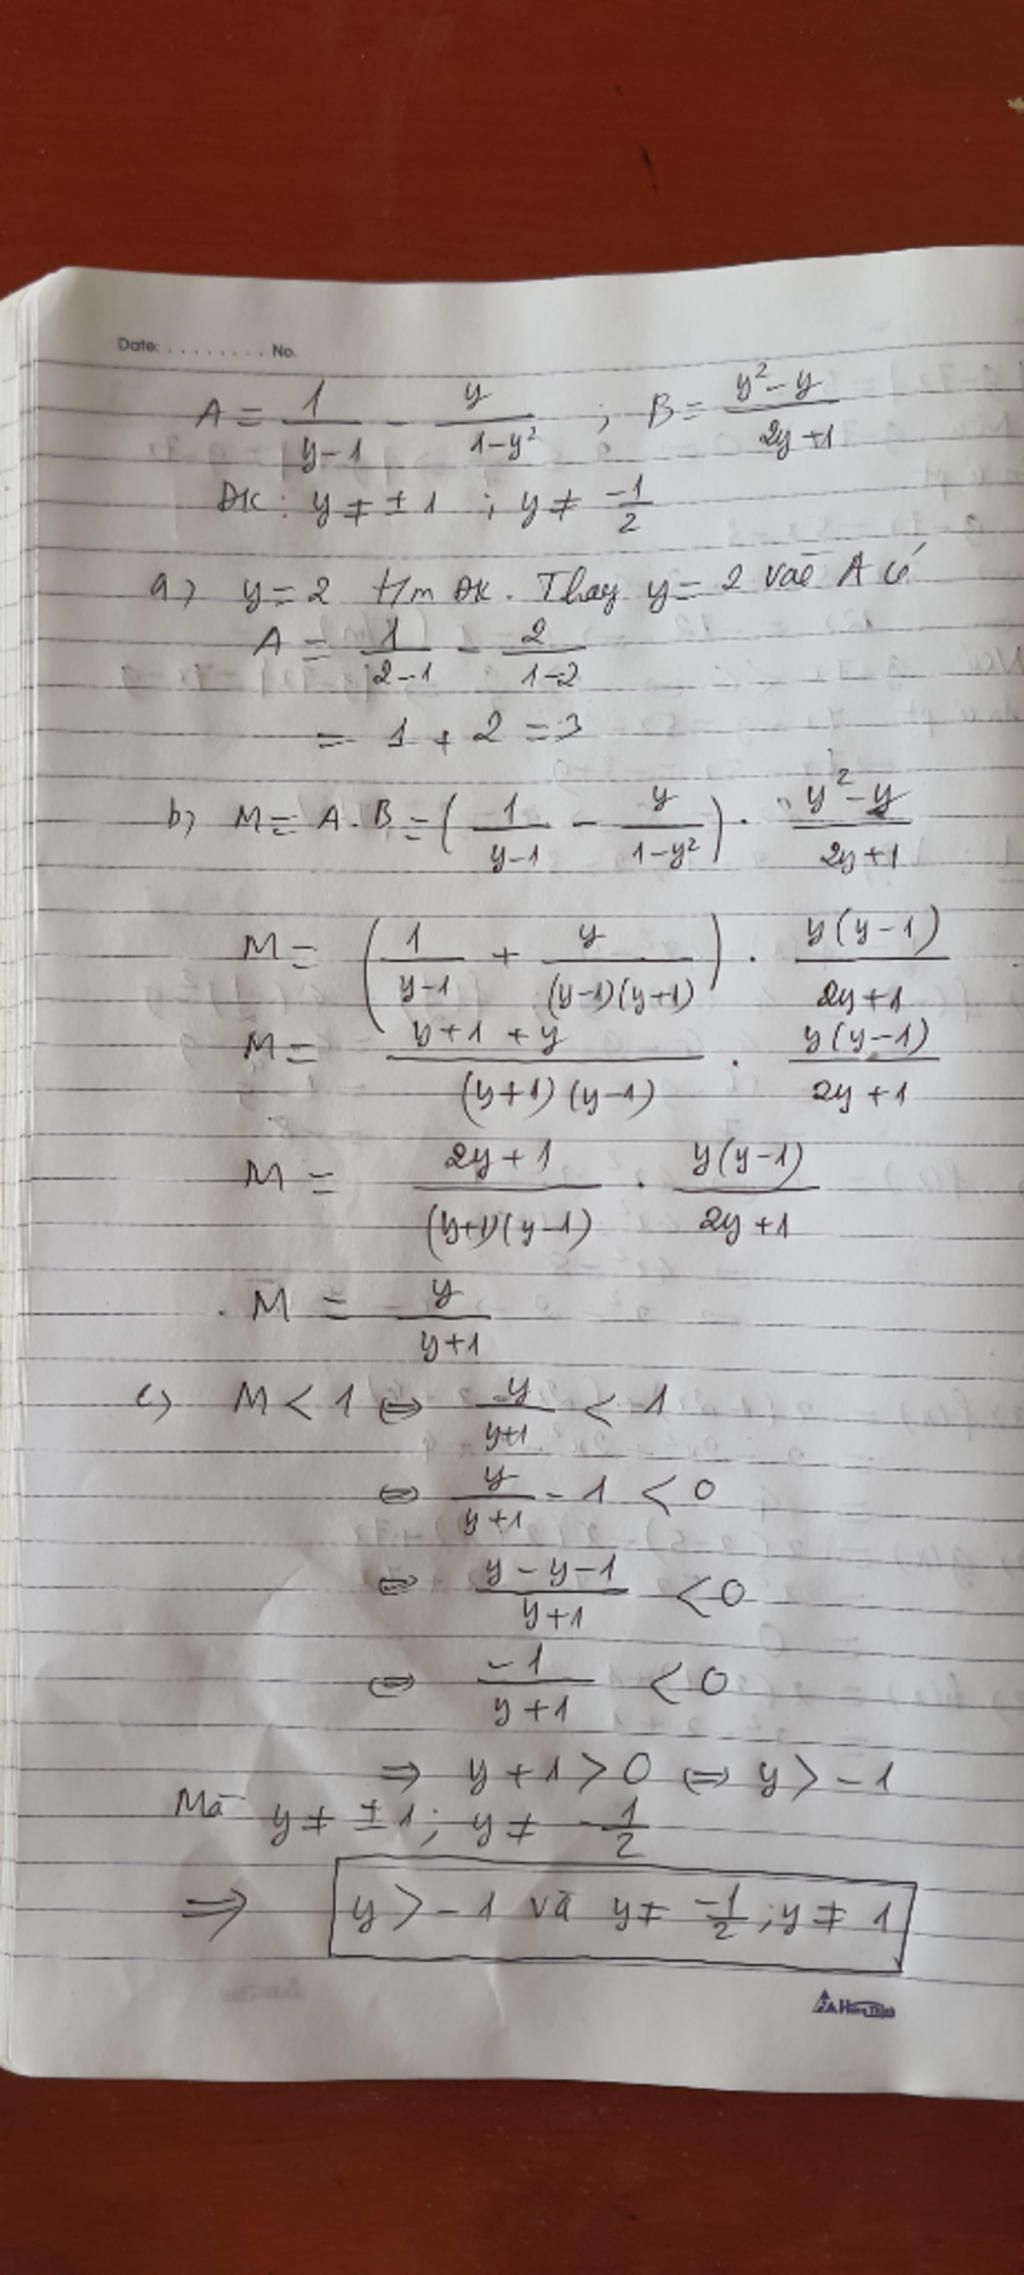 Date: ........ No.
A = 1/(y-1) - y/(1-y²) ; B = (y²-y)/(2y+1)
ĐK: y ≠ ±1 ; y ≠ -1/2
a) y = 2 t/m ĐK. Thay y = 2 vào A có
A = 1/(2-1) - 2/(1-2)
= 1 + 2 = 3
b) M = A.B = (1/(y-1) - y/(1-y²)) . (y²-y)/(2y+1)
M = (1/(y-1) + y/((y-1)(y+1))) . y(y-1)/(2y+1)
M = (y+1+y)/((y+1)(y-1)) . y(y-1)/(2y+1)
M = (2y+1)/((y+1)(y-1)) . y(y-1)/(2y+1)
M = y/(y+1)
c) M < 1 ⇔ y/(y+1) < 1
⇔ y/(y+1) - 1 < 0
⇔ (y-y-1)/(y+1) < 0
⇔ -1/(y+1) < 0
⇒ y+1 > 0 ⇔ y > -1
Mà y ≠ ±1; y ≠ -1/2
⇒ y > -1 và y ≠ -1/2 ; y ≠ 1